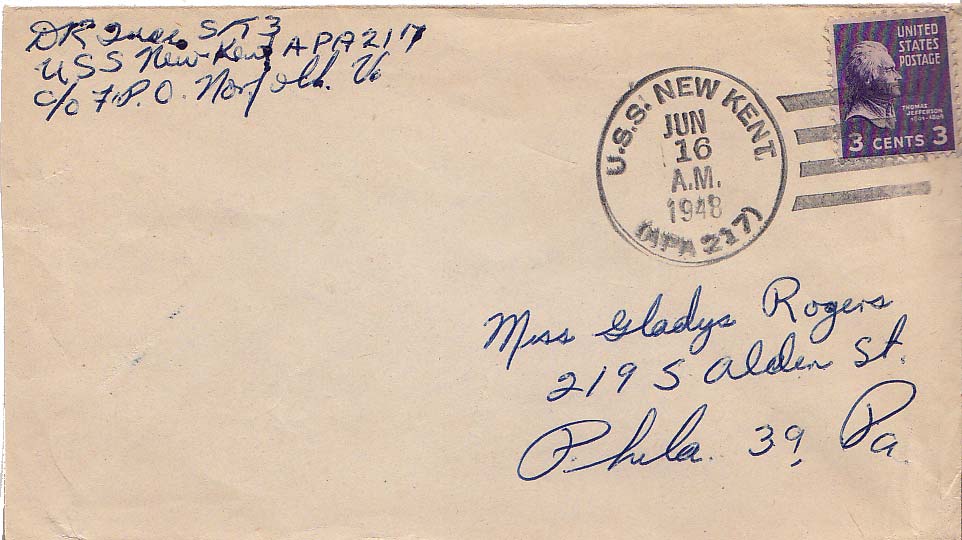 DR S T 3
USS New Kent APA 217
c/o F.P.O. Norfolk. Va
U.S.S. NEW KENT
JUN
16
A.M.
1948
(APA 217)
UNITED
STATES
POSTAGE
THOMAS
JEFFERSON
1801-1809
3 CENTS 3
Miss Gladys Rogers
219 S Alden St.
Phila. 39, Pa.